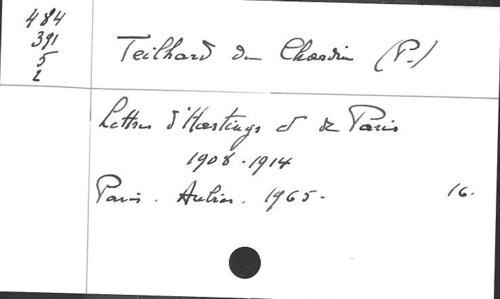 484
391
5
2
Teilhard de Chardin (P.)
Lettres d'Hastings et de Paris
1908-1914
Paris. Aubier. 1965-
16.